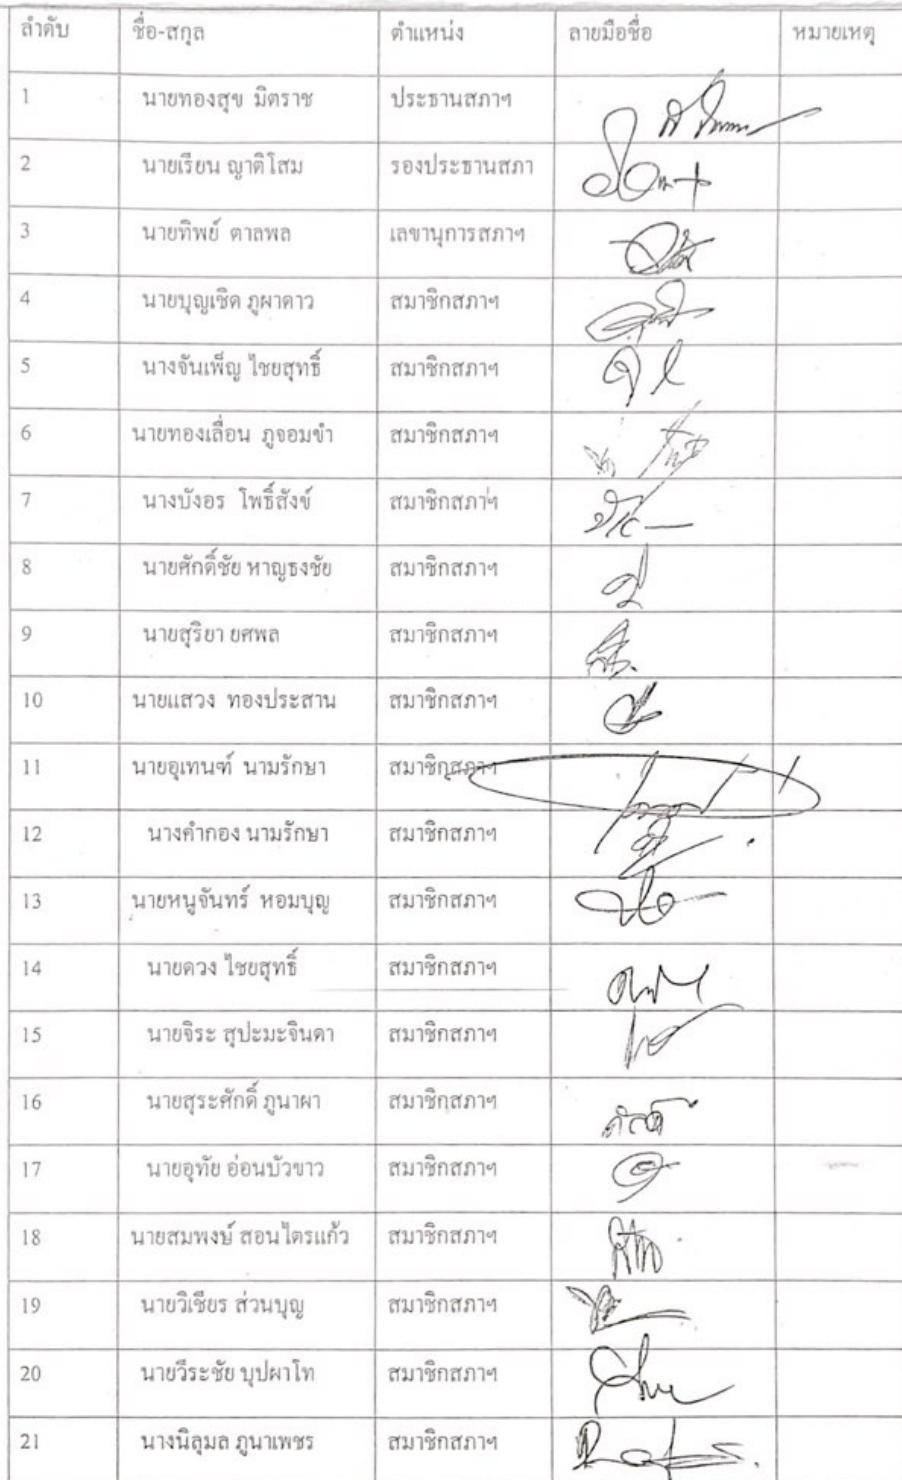 ลำดับ ชื่อ-สกุล ตำแหน่ง ลายมือชื่อ หมายเหตุ
1 นายทองสุข มิตราช ประธานสภาฯ
2 นายเรียน ญาติโสม รองประธานสภา
3 นายทิพย์ ตาลพล เลขานุการสภาฯ
4 นายบุญเชิด ภูผาดาว สมาชิกสภาฯ
5 นางจันเพ็ญ ไชยสุทธิ์ สมาชิกสภาฯ
6 นายทองเลื่อน ภูจอมขำ สมาชิกสภาฯ
7 นางบังอร โพธิ์สังข์ สมาชิกสภาฯ
8 นายศักดิ์ชัย หาญธงชัย สมาชิกสภาฯ
9 นายสุริยา ยศพล สมาชิกสภาฯ
10 นายแสวง ทองประสาน สมาชิกสภาฯ
11 นายอุเทนฑ์ นามรักษา สมาชิกสภาฯ
12 นางคำกอง นามรักษา สมาชิกสภาฯ
13 นายหนูจันทร์ หอมบุญ สมาชิกสภาฯ
14 นายดวง ไชยสุทธิ์ สมาชิกสภาฯ
15 นายจิระ สุปะมะจินดา สมาชิกสภาฯ
16 นายสุระศักดิ์ ภูนาผา สมาชิกสภาฯ
17 นายอุทัย อ่อนบัวขาว สมาชิกสภาฯ
18 นายสมพงษ์ สอนไตรแก้ว สมาชิกสภาฯ
19 นายวิเชียร ส่วนบุญ สมาชิกสภาฯ
20 นายวีระชัย บุปผาโท สมาชิกสภาฯ
21 นางนิลุมล ภูนาเพชร สมาชิกสภาฯ